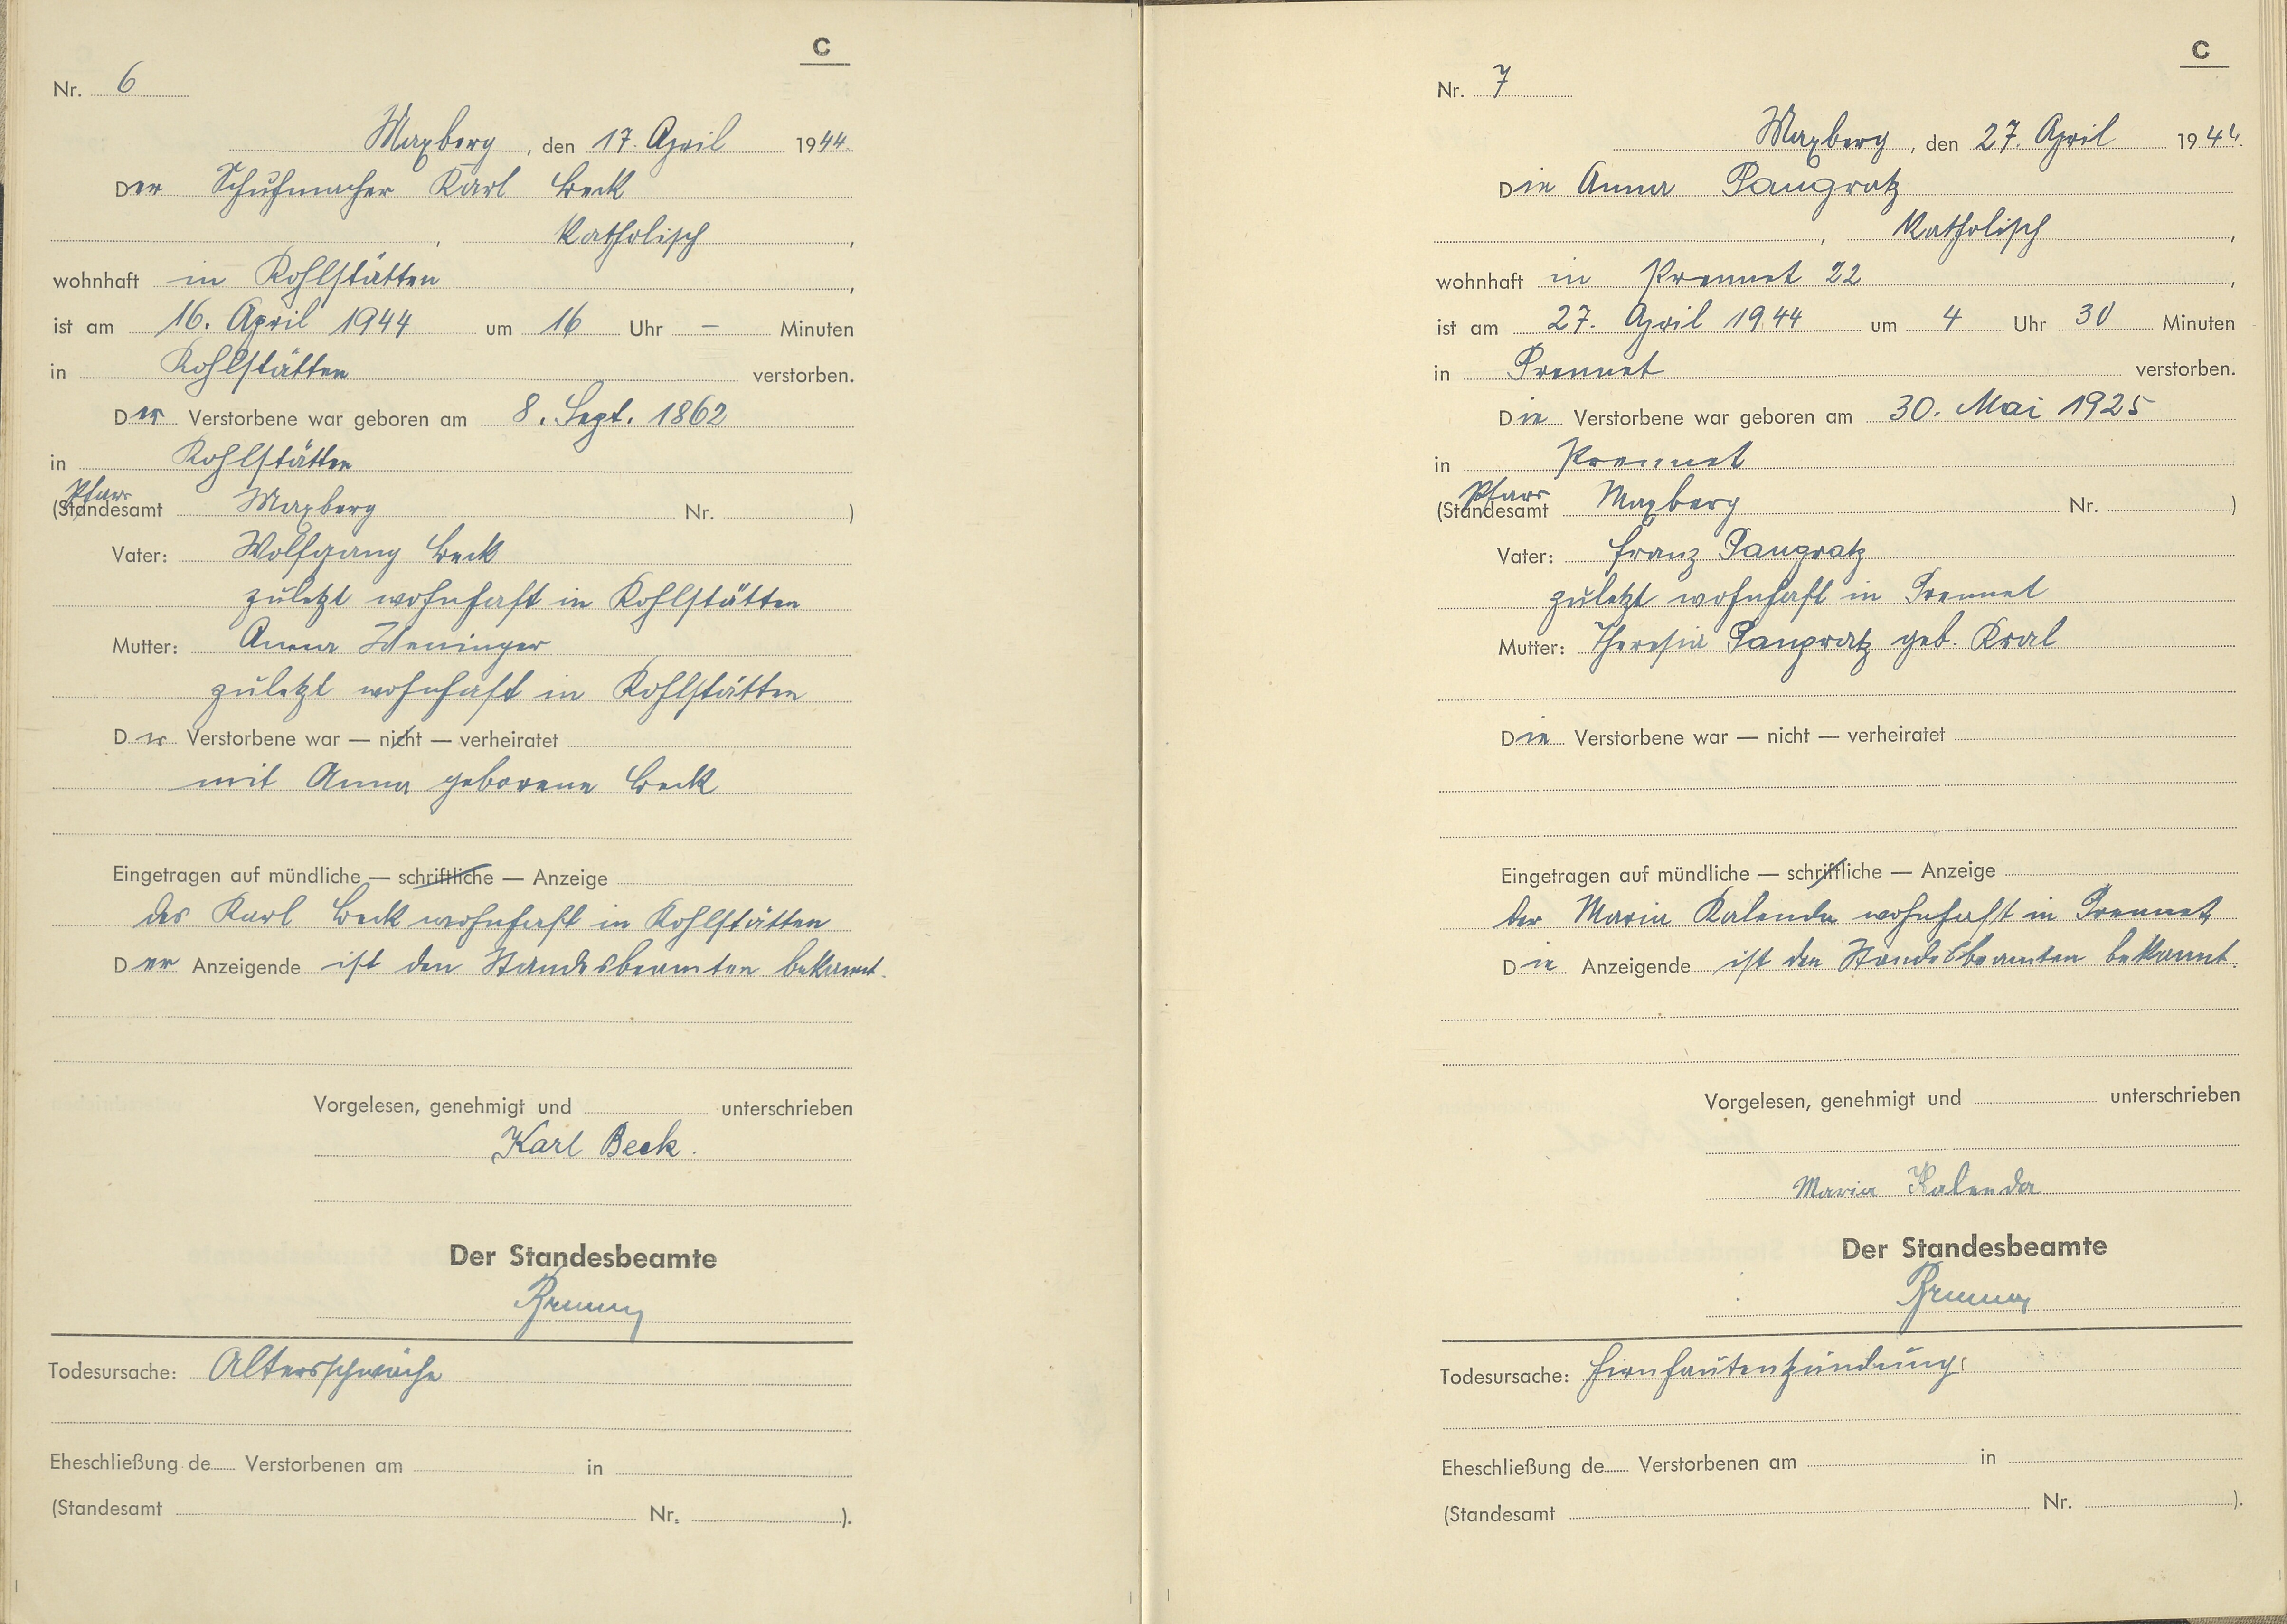 C
Nr. 6
Maxberg, den 17. April 1944.
Der Schuhmacher Karl Beck
, katholisch,
wohnhaft in Kohlstätten,
ist am 16. April 1944 um 16 Uhr – Minuten
in Kohlstätten verstorben.
Der Verstorbene war geboren am 8. Sept. 1862
in Kohlstätten
Pfarr
(Standesamt Maxberg Nr. )
Vater: Wolfgang Beck
zuletzt wohnhaft in Kohlstätten
Mutter: Anna Weninger
zuletzt wohnhaft in Kohlstätten
Der Verstorbene war — nicht — verheiratet
mit Anna geborene Beck
Eingetragen auf mündliche — schriftliche — Anzeige
des Karl Beck wohnhaft in Kohlstätten
Der Anzeigende ist den Standesbeamten bekannt.
Vorgelesen, genehmigt und unterschrieben
Karl Beck.
Der Standesbeamte
Todesursache: Altersschwäche
Eheschließung de Verstorbenen am in
(Standesamt Nr. ).
C
Nr. 7
Maxberg, den 27. April 1944.
Die Anna Pangratz
, katholisch,
wohnhaft in Prennet 22,
ist am 27. April 1944 um 4 Uhr 30 Minuten
in Prennet verstorben.
Die Verstorbene war geboren am 30. Mai 1925
in Prennet
Pfarr
(Standesamt Maxberg Nr. )
Vater: Franz Pangratz
zuletzt wohnhaft in Prennet
Mutter: Theresia Pangratz geb. Kral
Die Verstorbene war — nicht — verheiratet
Eingetragen auf mündliche — schriftliche — Anzeige
der Maria Kalenda wohnhaft in Prennet
Die Anzeigende ist den Standesbeamten bekannt.
Vorgelesen, genehmigt und unterschrieben
Maria Kalenda
Der Standesbeamte
Todesursache: Hirnhautentzündung
Eheschließung de Verstorbenen am in
(Standesamt Nr. ).